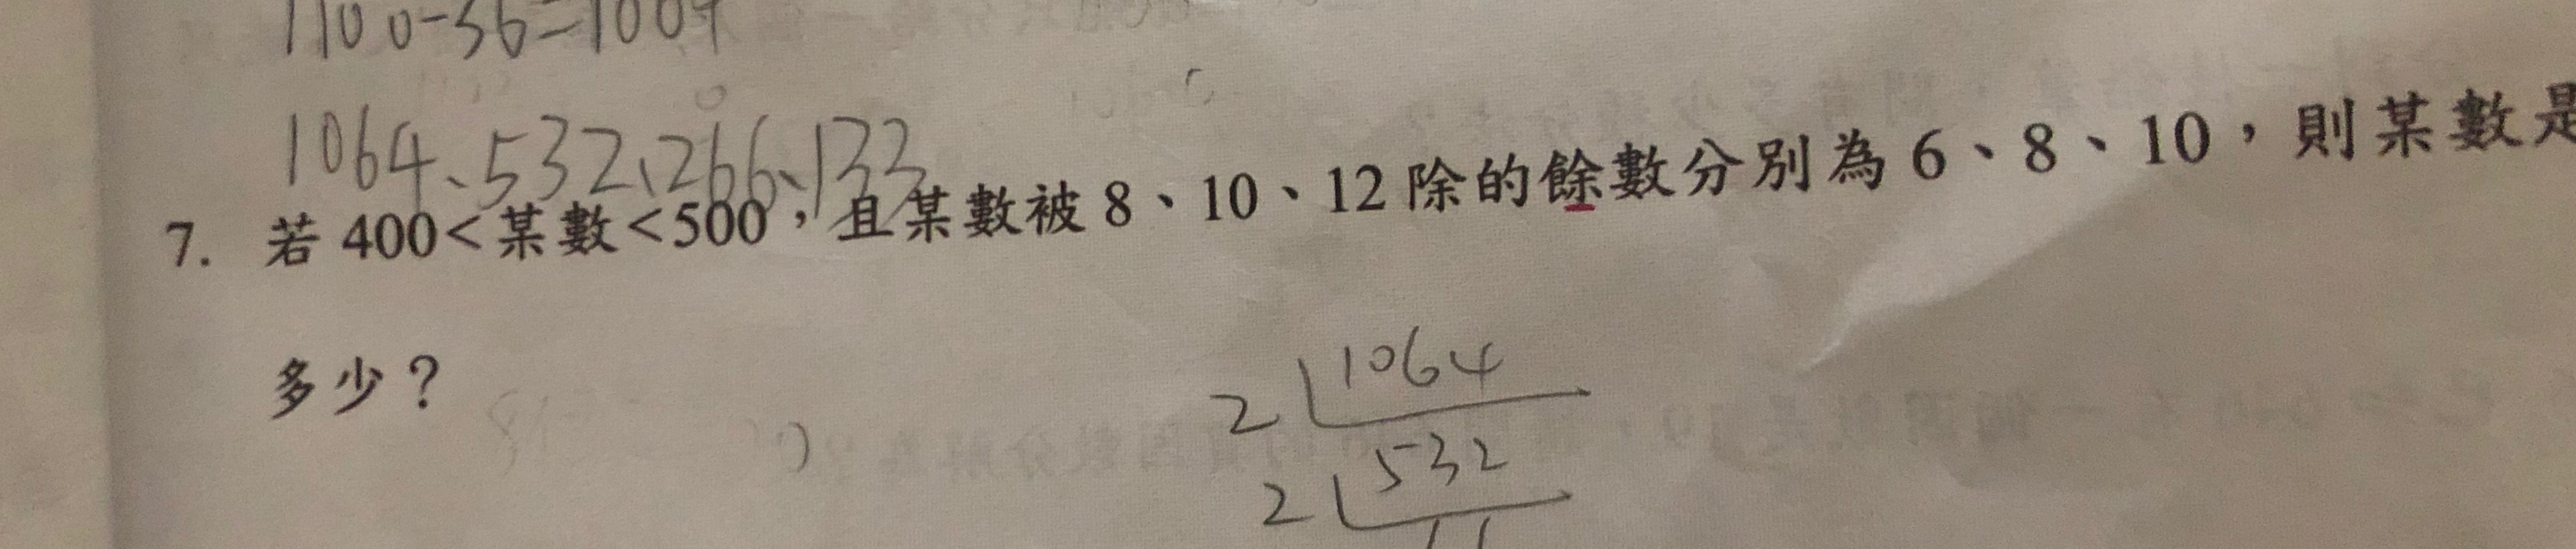 1100-36=1064
1064、532、266、133
7. 若 400<某數<500，且某數被 8、10、12 除的餘數分別為 6、8、10，則某數是
多少？
2 1064
2 532